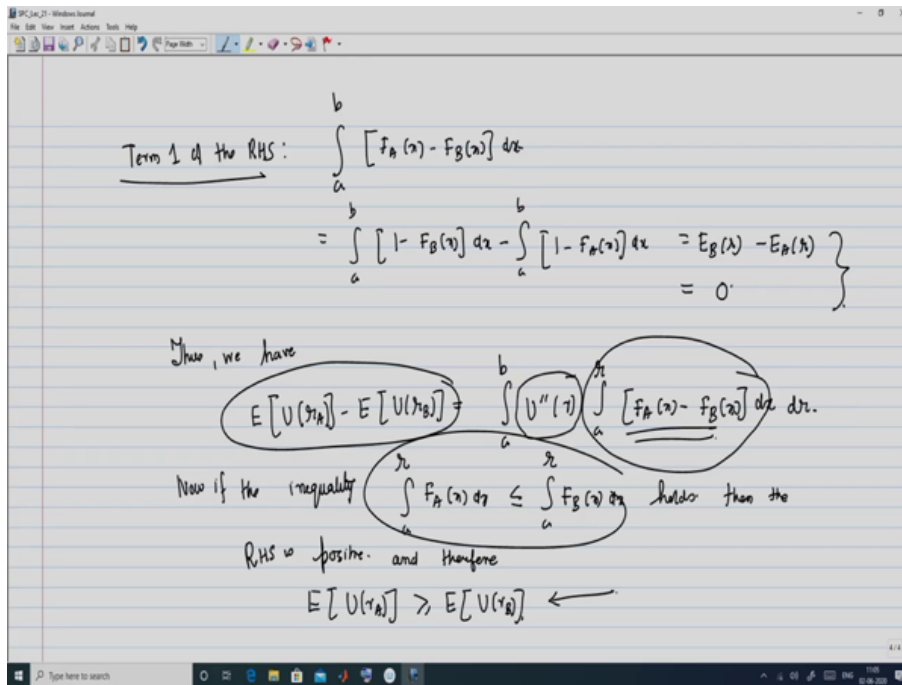 SPC_Lec_21 - Windows Journal
File Edit View Insert Actions Tools Help
Page Width
Term 1 of the RHS: ∫_a^b [F_A(x) - F_B(x)] dx
= ∫_a^b [1 - F_B(x)] dx - ∫_a^b [1 - F_A(x)] dx = E_B(r) - E_A(r)
= 0
Thus, we have
E[U(r_A)] - E[U(r_B)] = ∫_a^b U''(r) ∫_a^r [F_A(x) - F_B(x)] dx dr.
Now if the inequality ∫_a^r F_A(x) dx ≤ ∫_a^r F_B(x) dx holds then the
RHS is positive. and therefore
E[U(r_A)] ≥ E[U(r_B)]. ←
4/4
Type here to search
ENG
11:05
02-06-2020